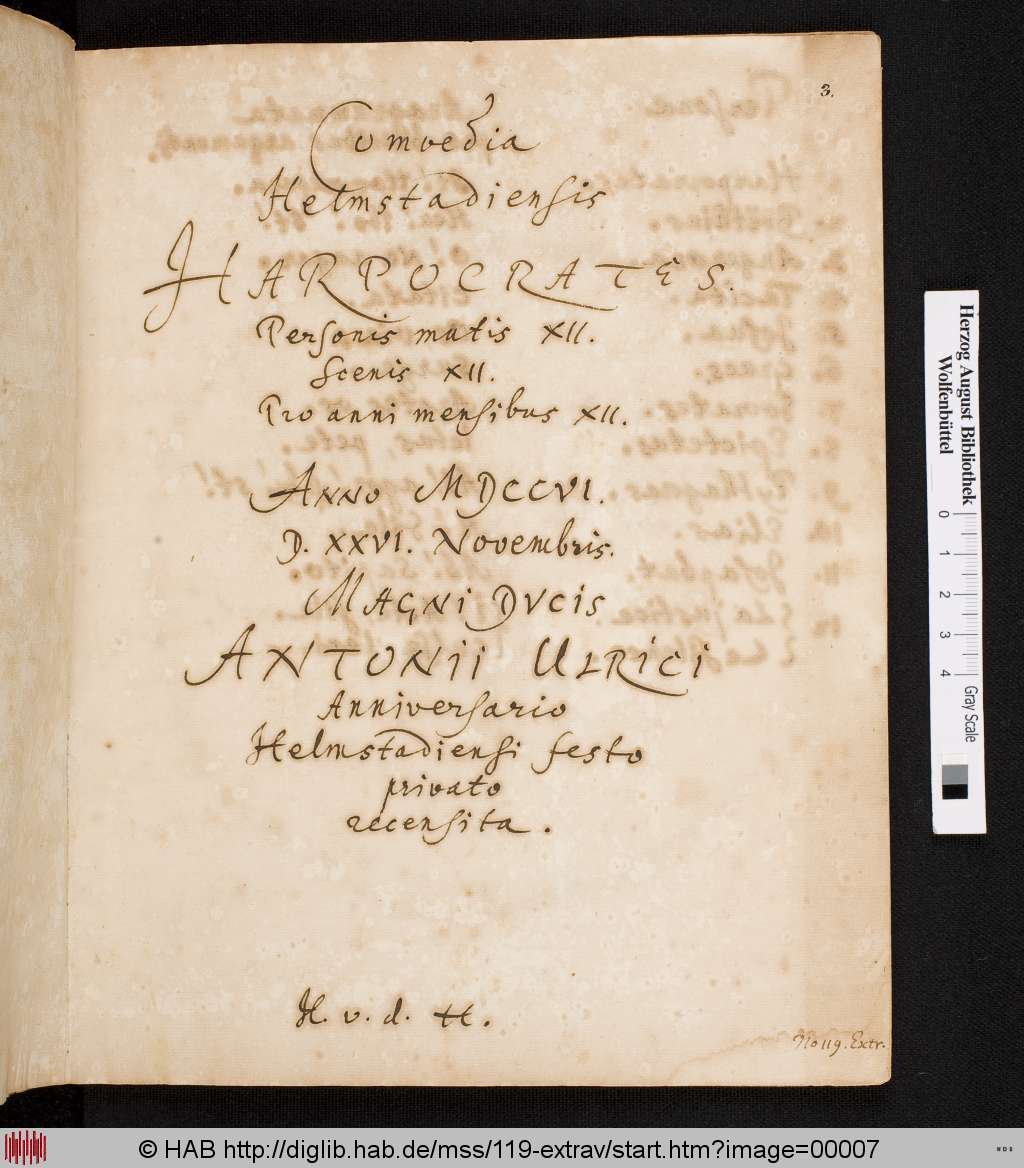 3.
Comoedia
Helmstadiensis
HARPOCRATES.
Personis mutis XII.
Scenis XII.
Pro anni mensibus XII.
ANNO MDCCVI.
D. XXVI. Novembris.
MAGNI DVCIS
ANTONII ULRICI
Anniversario
Helmstadiensi festo
privato
recensita.
H. v. d. H.
No 119. Extr.
Herzog August Bibliothek
Wolfenbüttel
0 1 2 3 4 Gray Scale
© HAB http://diglib.hab.de/mss/119-extrav/start.htm?image=00007